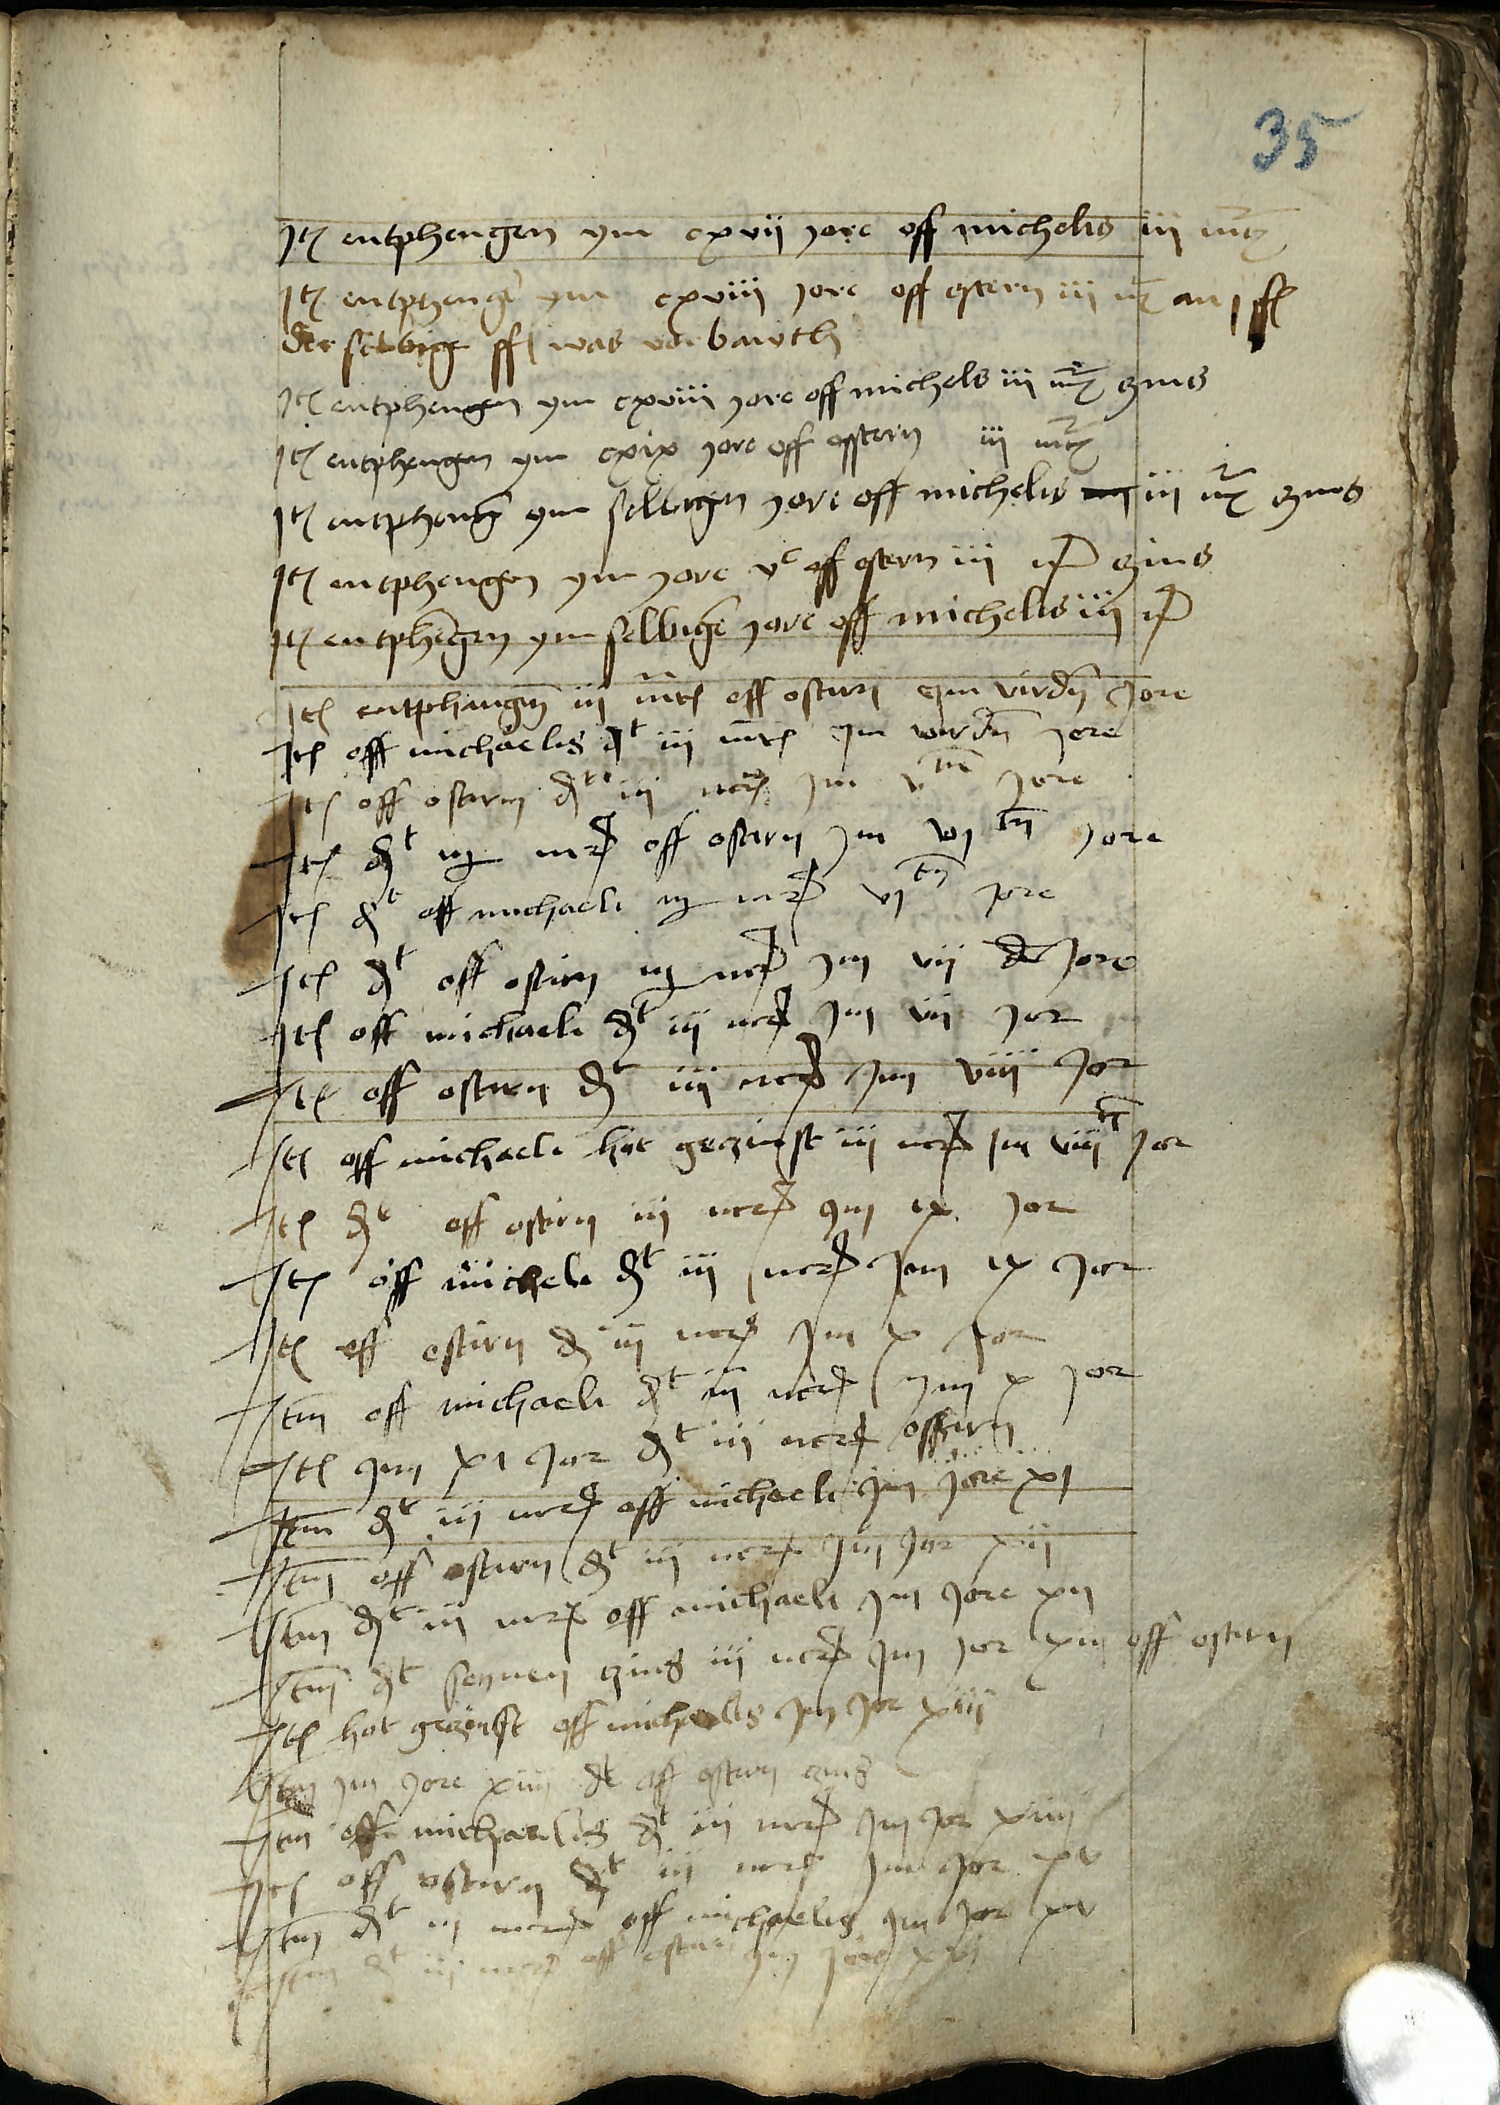 35
Itẽ entphengen ym cxvii jore off michelis iii mr̃
Itẽ entphengẽ ym cxviii jore off ostern iii mr̃ an j ſſ
der selbige ſſ was vorbawth
Itẽ entphengen ym cxviii jore off michels iii mr̃ czins
Itẽ entphengen ym cxix jore off osstern iii mr̃
Itẽ entphengẽ ym selbigen jore off michelis iii mr̃ czins
Itẽ entphengen ym jore vᶜ off ostern iii mr̃ czins
Itẽ entphẽgen ym selbigẽ jore off michelis iii mr̃
Itẽ entphangñ iii mrc̃ off ostirn ym virdñ Jore
Itẽ off michaelis dᵗ iii mrc̃ ym virdñ jore
Itẽ off ostirn dᵗ iii mrc̃ im vᵗⁿ Jore
Itẽ dᵗ iij mrc̃ off ostirn im vjᵗⁿ jore
Itẽ dᵗ off michaeli iij mrc̃ vjᵗⁿ jore
Itẽ dᵗ off ostirn iij mrc̃ im vii dẽ Jore
Itẽ off michaeli dᵗ iii mrc̃ Im vii Jor
Itẽ off ostirn dᵗ iii mrc̃ Im viii Jor
Itẽ off michaeli hot geczinst iii mrc̃ Im viiiᵗⁿ Jor
Itẽ dᵗ off ostirn iii mrc̃ ym ix Jor
Itẽ off micheli dᵗ iii mrc̃ Im ix Jor
Itẽ off ostirn d iii mrc̃ Im x Jor
Itm off michaeli dᵗ iii mrc̃ ym x jor
Itẽ ym xi Jar dᵗ iii mrc̃ osstirn
Itm dᵗ iii mrc̃ off michaeli im Jore xi
Itm off ostirn dᵗ iii mrc̃ Im Jar xii
Itm dᵗ iii mrc̃ off michaeli im Jore xii
Itm dᵗ seynen czins iii mrc̃ Im jor xiii off ostirn
Itẽ hot geczinst off michaelis Im Jor xiii
Itm im Jore xiiii dᵗ off ostirn czins
Itm off michaelis dᵗ iii mrc̃ Im Jor xiiii
Itẽ off ostirn dᵗ iii mrc̃ Im Jor xv
Itm dᵗ iii mrc̃ off michaelis ym Jor xv
Itm dᵗ iii mrc̃ off ostirn ym Jore xvi